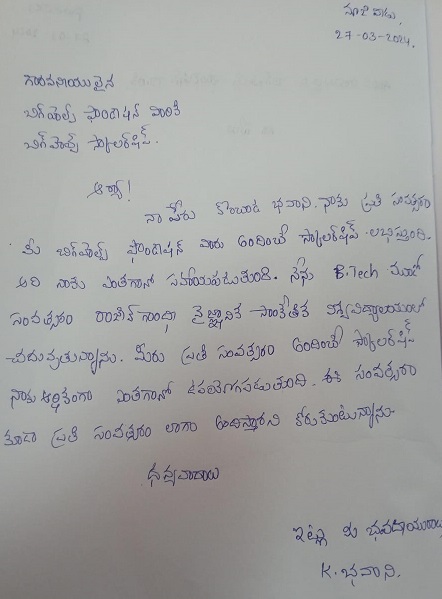 నూజివీడు,
27-03-2024.
గౌరవనీయులైన
బిగ్‌హెల్ప్ ఫౌండేషన్ వారికి
బిగ్‌హెల్ప్ స్కాలర్‌షిప్.
ఆర్యా!
నా పేరు కొంబాడ భవాని. నాకు ప్రతి సంవత్సరం
మీ బిగ్‌హెల్ప్ ఫౌండేషన్ వారు అందించే స్కాలర్‌షిప్ లభిస్తుంది.
అది నాకు ఎంతగానో సహాయపడుతుంది. నేను B.Tech మూడో
సంవత్సరం రాజీవ్ గాంధీ వైజ్ఞానిక సాంకేతిక విశ్వవిద్యాలయంలో
చదువుతున్నాను. మీరు ప్రతి సంవత్సరం అందించే స్కాలర్‌షిప్
నాకు ఆర్థికంగా ఎంతగానో ఉపయోగపడుతుంది. ఈ సంవత్సరం
కూడా ప్రతి సంవత్సరం లాగా అందిస్తారని కోరుకుంటున్నాను.
ధన్యవాదాలు
ఇట్లు మీ భవదీయురాలు
K. భవాని.